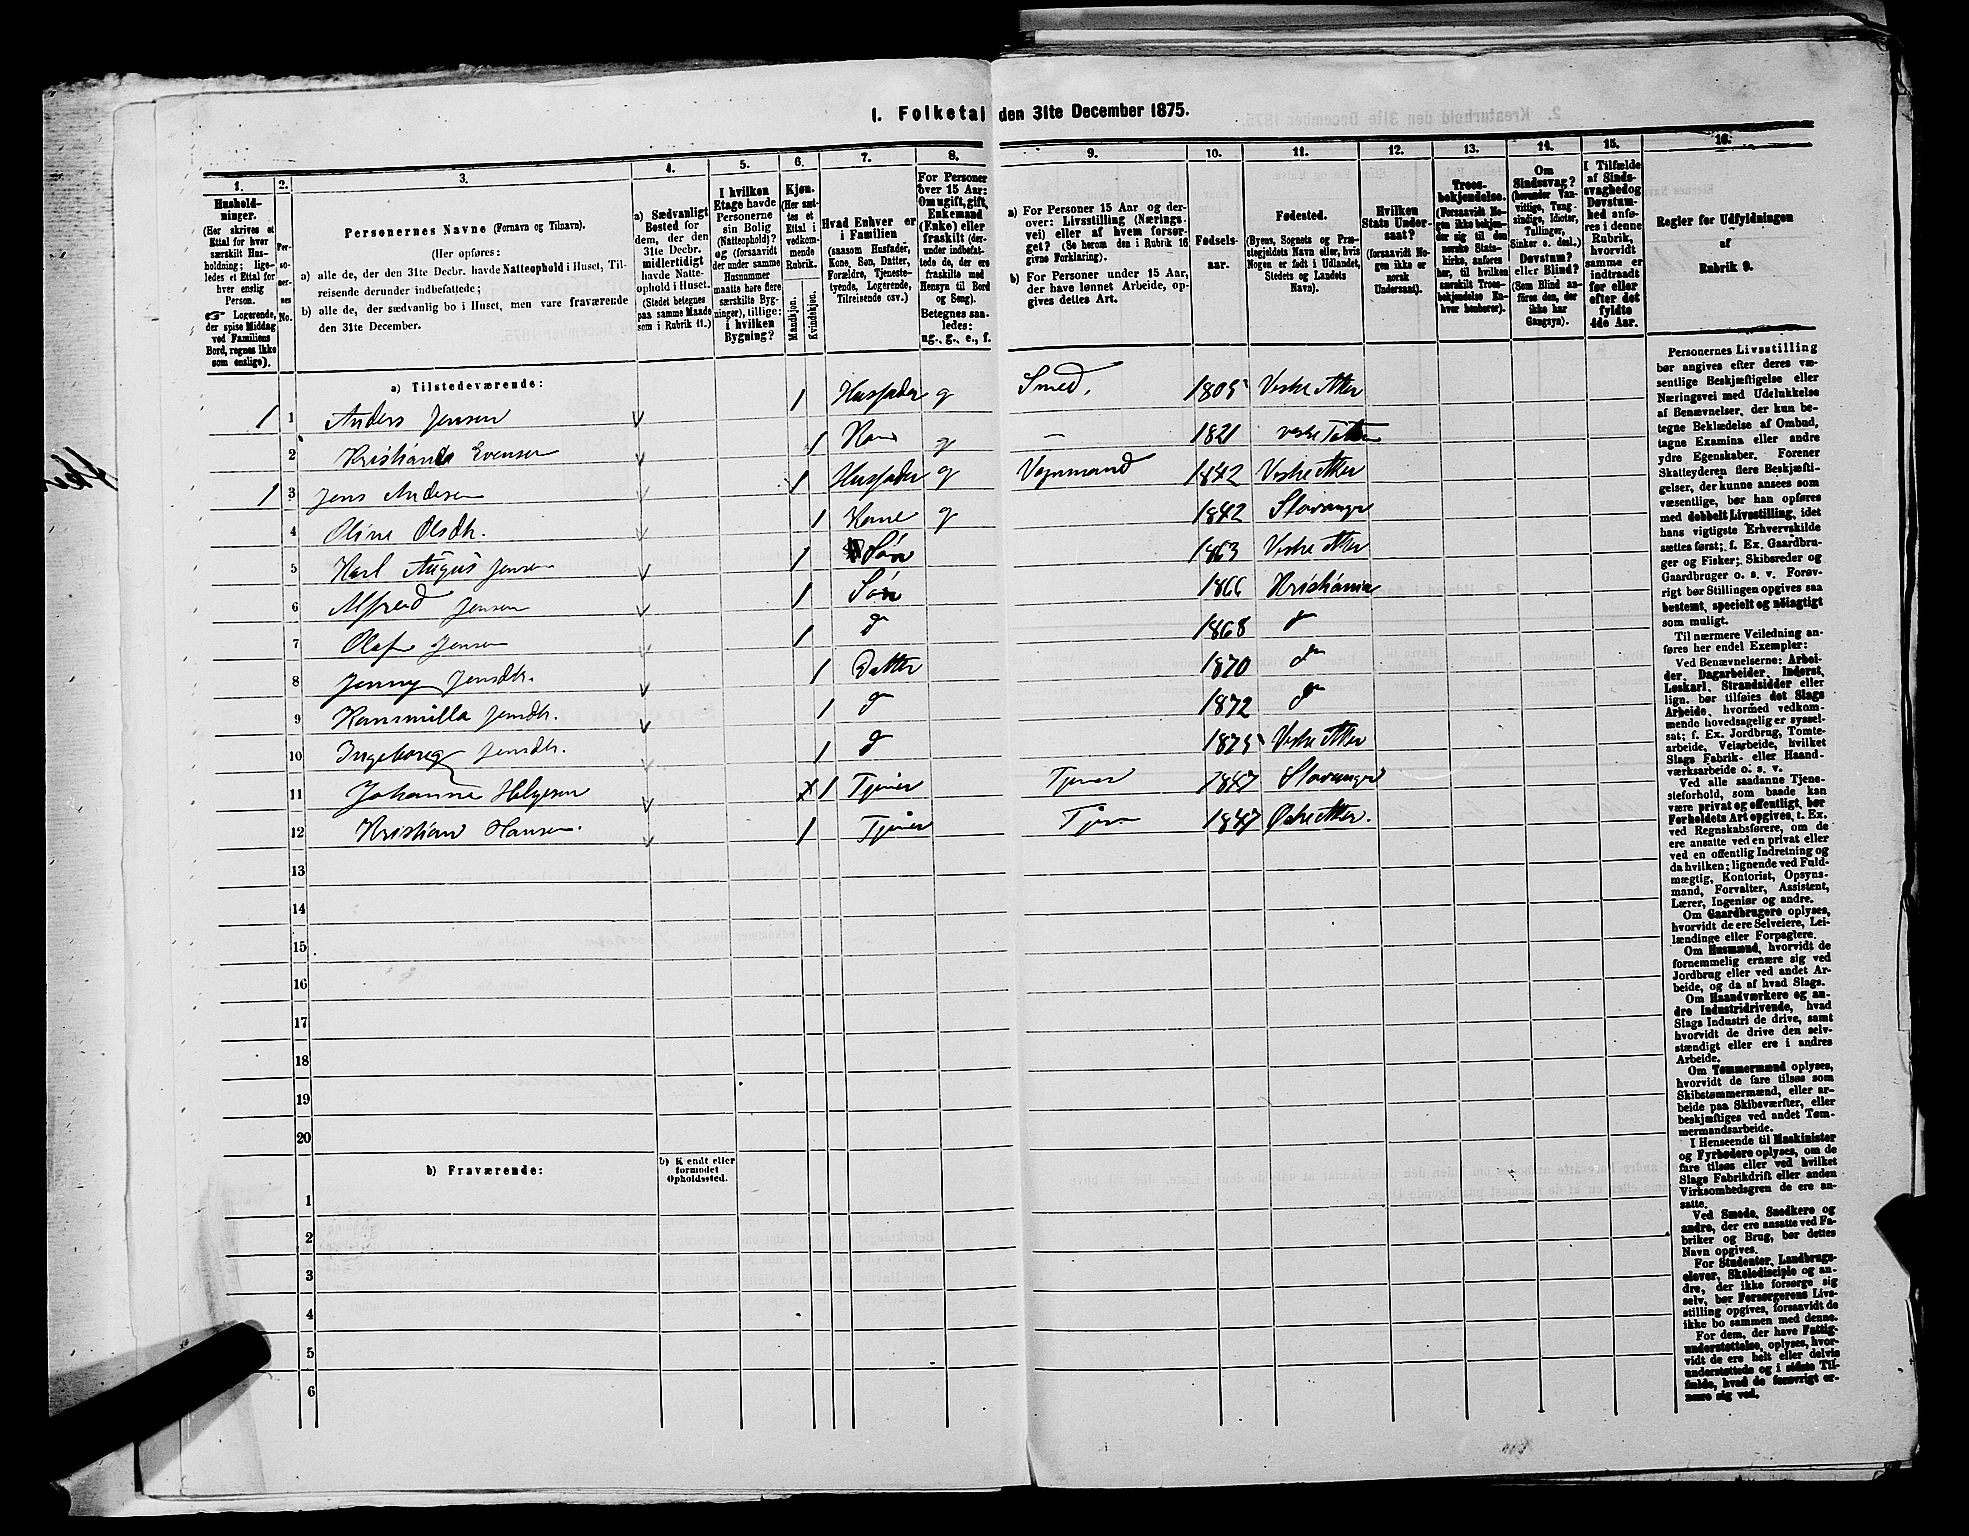 1. Folketal den 31te December 1875.
1.
2.
3.
4.
5.
6.
7.
8.
9.
10.
11.
12.
13.
14.
15.
16.
Husholdninger.
(Her skrives et
Ettal for hver
særskilt Husholdning;
ligeledes et Ettal for
hver enslig
Person.
Logerende,
der spise Middag
ved Familiens
Bord, regnes ikke
som enslige).
Personernes No.
Personernes Navne (Fornavn og Tilnavn).
(Her opføres:
a) alle de, der den 31te Decbr. havde Natteophold i Huset, Tilreisende derunder indbefattede;
b) alle de, der sædvanlig bo i Huset, men vare fraværende
den 31te December.
a) Sædvanligt
Bosted for
dem, der den
31te Decbr.
midlertidigt
havde Natteophold i Huset.
(Stedet betegnes
paa samme Maade
som i Rubrik 11.)
I hvilken
Etage havde
Personerne
sin Bolig
(Natteophold)?
og (forsaavidt
der under samme
Husnummer
maatte høre flere
særskilte Bygninger), tillige:
i hvilken
Bygning?
Kjøn.
(Her sættes et
Ettal i
vedkommende
Rubrik.
Mandkjøn.
Kvindekjøn.
Hvad Enhver er
i Familien
(saasom Husfader,
Kone, Søn, Datter,
Forældre, Tjenestetyende, Logerende,
Tilreisende osv.)
For Personer
over 15 Aar:
Om ugift, gift,
Enkemand
(Enke) eller
fraskilt (derunder indbefattede de, der ere
fraskilte med
Hensyn til Bord
og Seng).
Betegnes saaledes:
ug., g., e., f.
a) For Personer 15 Aar og derover: Livsstilling (Næringsvei) eller af hvem forsørget? (Se herom den i Rubrik 16
givne Forklaring).
b) For Personer under 15 Aar,
der have lønnet Arbeide, opgives dettes Art.
Fødselsaar.
Fødested.
(Byens, Sognets og Præstegjeldets Navn eller, hvis
Nogen er født i Udlandet,
Stedets og Landets
Navn).
Hvilken
Stats Undersaat?
(forsaavidt Nogen ikke er
norsk
Undersaat).
Troesbekjendelse.
(Forsaavidt Nogen ikke bekjender sig til den
norske Statskirke, anføres
her, til hvilken
særskilt Troesbekjendelse Enhver henhører).
Om
Sindssvag?
(herunder Vanvittige, Tungsindige, Idioter,
Tullinger,
Sinker o. desl.)
Døvstum?
eller Blind?
(Som Blind anføres den, der
ikke har
Gangsyn).
I Tilfælde
af Sindssvaghed og
Døvstumhed anføres i denne
Rubrik,
hvorvidt
samme er
indtraadt
før eller
efter det
fyldte
4de Aar.
Regler for Udfyldningen
af
Rubrik 9.
a) Tilstedeværende:
1 1 Anders Jensen 1 Husfader g Smed. 1805 Vestre Aker
2 Evensen 1 g — 1821
1 3 Jens Andersen 1 Husfader g Vognmand 1842 Vestre Aker
4 Oline Olsdtr. 1 Kone g 1842 Stavanger
5 Karl August Jensen 1 Søn 1863 Vestre Aker
6 Alfred Jensen 1 Søn 1866 Kristiania
7 Olaf Jensen 1 d 1868 d
8 Jenny Jensdtr. 1 Datter 1870 d
9 Hansmilla Jensdtr. 1 d 1872 d
10 Ingeborg Jensdtr. 1 d 1875 Vestre Aker
11 Johanne Helgesen 1 Tjener Tjener 1847 Stavanger
12 Kristian Hansen. 1 Tjener 1847 Østre Aker.
13
14
15
16
17
18
19
20
b) Fraværende:
b) Kjendt eller
formodet
Opholdssted.
1
2
3
4
5
6
Personernes Livsstilling
bør angives efter deres væsentlige Beskjæftigelse eller
Næringsvei med Udelukkelse
af Benævnelser, der kun betegne Beklædelse af Ombud,
tagne Examina eller andre
ydre Egenskaber. Forener
Skatteyderen flere Beskjæftigelser, der kunne ansees som
væsentlige, bør han opføres
med dobbelt Livsstilling, idet
hans vigtigste Erhvervskilde
sættes først; f. Ex. Gaardbruger og Fisker; Skibsreder og
Gaardbruger o. s. v. Forøvrigt bør Stillingen opgives saa
bestemt, specielt og nøiagtigt
som muligt.
Til nærmere Veiledning anføres her endel Exempler:
Ved Benævnelserne: Arbeider, Dagarbeider, Inderst,
Løskarl, Strandsidder eller
lign. bør tilføies det Slags
Arbeide, hvormed vedkommende hovedsagelig er sysselsat; f. Ex. Jordbrug, Tomtearbeide, Veiarbeide, hvilket
Slags Fabrik- eller Haandværksarbeide o. s. v.
Ved alle saadanne Tjenesteforhold, som baade kan
være privat og offentligt, bør
Forholdets Art opgives, t. Ex.
ved Regnskabsførere, om de
ere ansatte ved en privat eller
ved en offentlig Indretning og
da hvilken; lignende ved Fuldmægtig, Kontorist, Opsynsmand, Forvalter, Assistent,
Lærer, Ingeniør og andre.
Om Gaardbrugere oplyses,
hvorvidt de ere Selveiere, Leilændinge eller Forpagtere.
Om Husmænd, hvorvidt de
fornemmelig ernære sig ved
Jordbrug eller ved andet Arbeide, og da af hvad Slags.
Om Haandværkere og andre Industridrivende, hvad
Slags Industri de drive, samt
hvorvidt de drive den selvstændigt eller ere i andres
Arbeide.
Om Tømmermænd oplyses,
hvorvidt de fare tilsøs som
Skibstømmermænd, eller arbeide paa Skibsværfter, eller
beskjæftiges ved andet Tømmermandsarbeide.
I Henseende til Maskinister
og Fyrbødere oplyses, om de
fare tilsøs eller ved hvilket
Slags Fabrikdrift eller anden
Virksomhedsgren de ere ansatte.
Ved Smede, Snedkere og
andre, der ere ansatte ved Fabriker og Brug, bør dettes
Navn opgives.
For Studenter, Landbrugselever, Skoledisciple og andre, der ikke forsørge sig
selv, bør Forsørgerens Livsstilling opgives, forsaavidt de
ikke bo sammen med denne.
For dem, der have Fattigunderstøttelse, oplyses, hvorvidt de ere helt eller delvis
understøttede og i sidste Tilfælde, hvad de forøvrigt ernære sig ved.